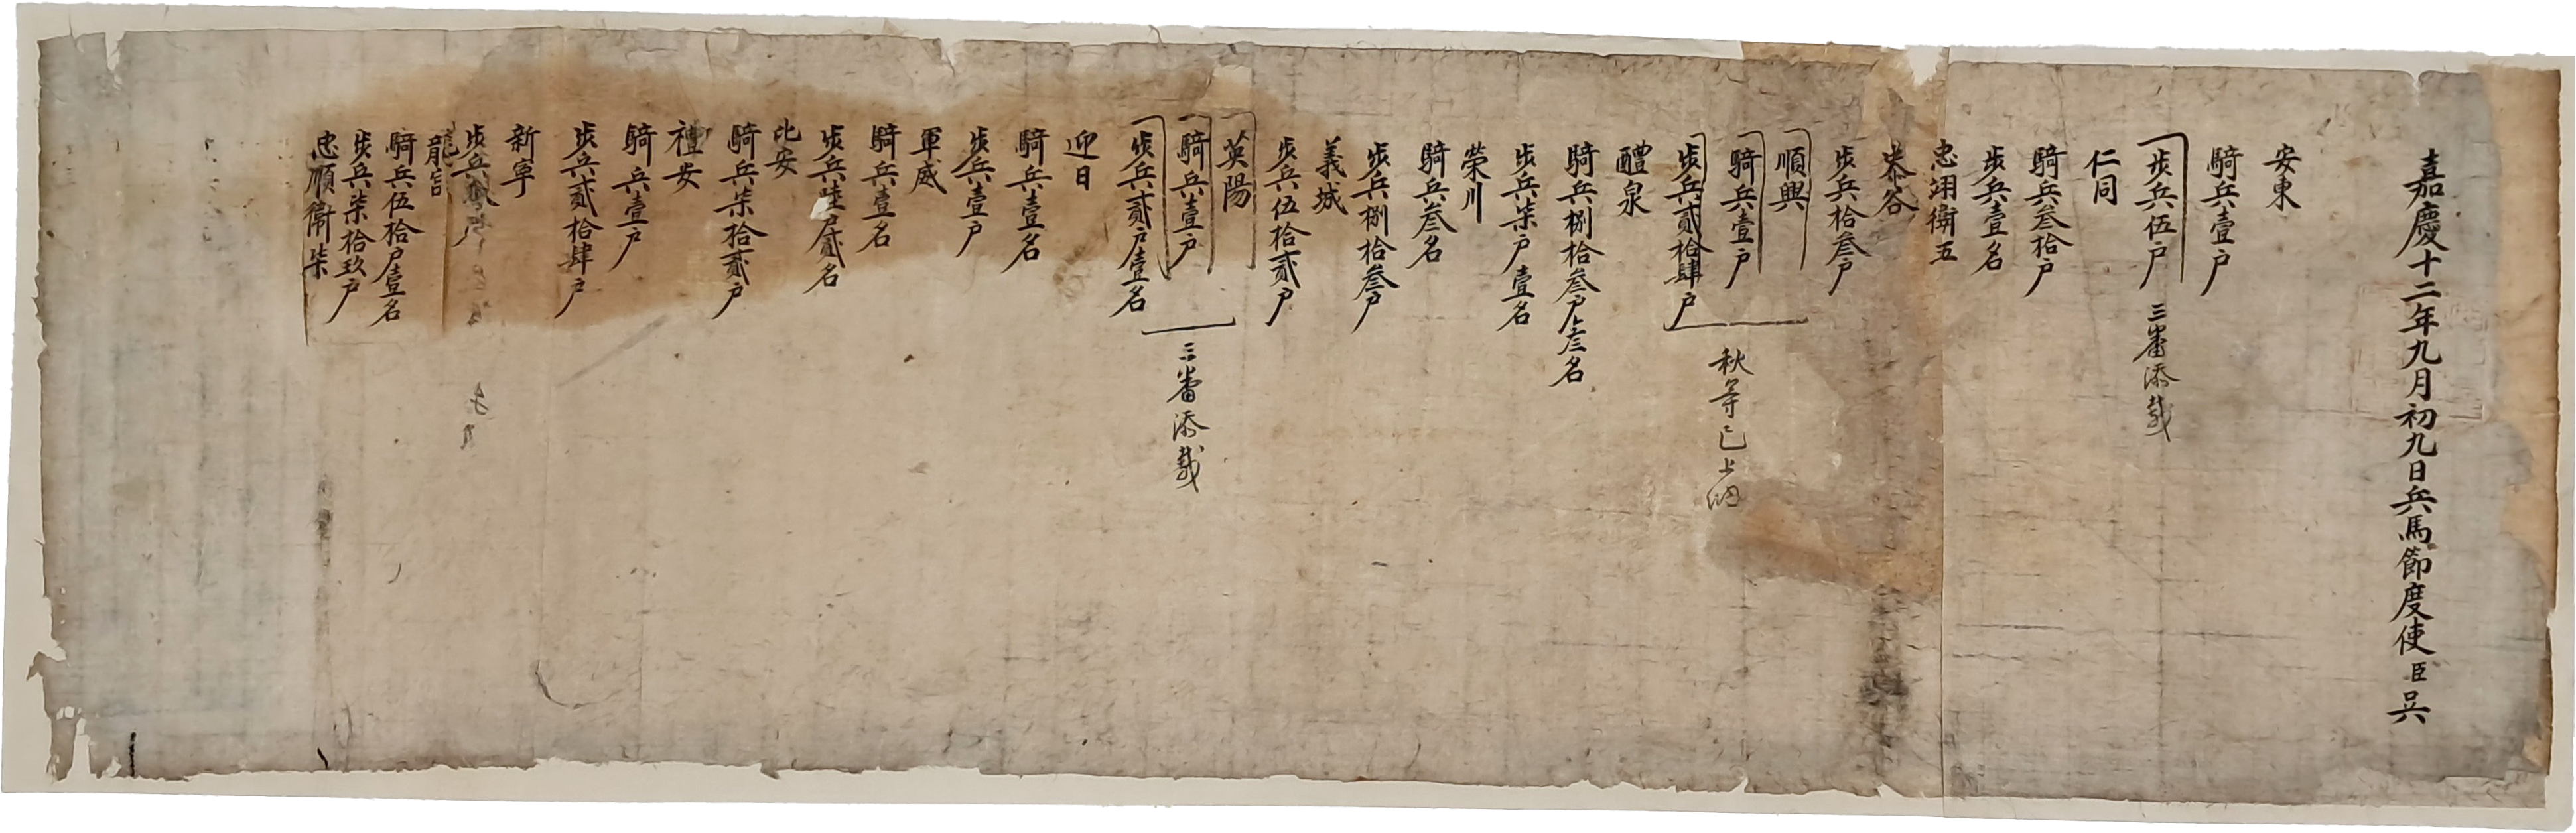 嘉慶十二年九月初九日兵馬節度使臣吳
安東
騎兵壹戶
步兵伍戶 三番添載
仁同
騎兵叁拾戶
步兵壹名
忠翊衛五
柒谷
步兵拾叁戶
順興
騎兵壹戶
步兵貳拾肆戶
秋等已上納
醴泉
騎兵捌拾叁戶叁名
步兵柒戶壹名
榮川
騎兵叁名
步兵捌拾叁戶
義城
步兵伍拾貳戶
英陽
騎兵壹戶
步兵貳戶壹名
三番添載
迎日
騎兵壹名
步兵壹戶
軍威
騎兵壹名
步兵陸戶貳名
比安
騎兵柒拾貳戶
禮安
騎兵壹戶
步兵貳拾肆戶
新寧
步兵
龍宮
騎兵伍拾戶壹名
步兵柒拾玖戶
忠順衛柒